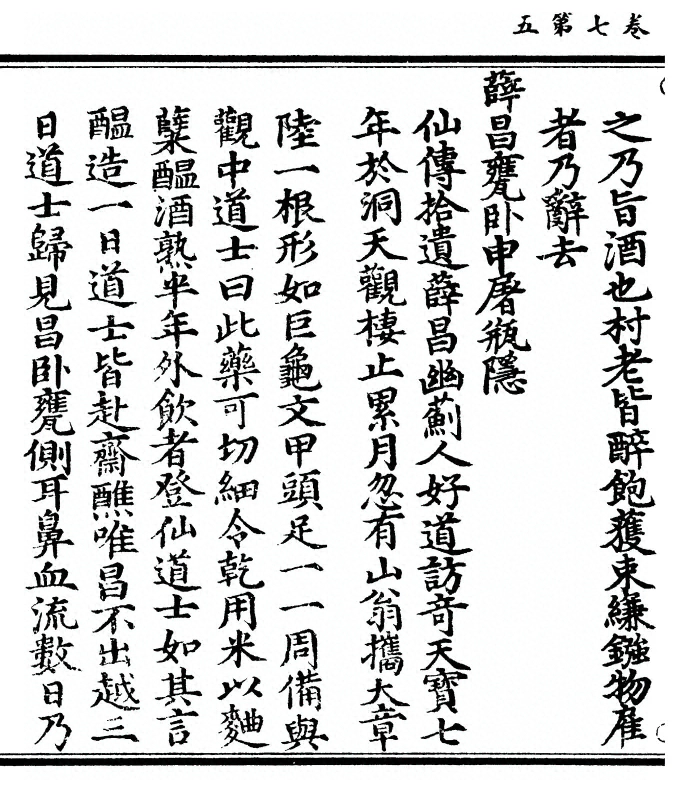 卷七第五
之乃旨酒也村老皆醉飽獲束縑鏹物雇
者乃辭去
薛昌甕卧申屠瓶隱
仙傳拾遺薛昌幽薊人好道訪竒天寶七
年於洞天觀棲止累月忽有山翁攜大章
陸一根形如巨龜文甲頭足一一周備與
觀中道士曰此藥可切細令乾用米以麴
糵醖酒熟半年外飲者登仙道士如其言
醖造一日道士皆赴齋醮唯昌不出越三
日道士歸見昌卧甕側耳鼻血流數日乃